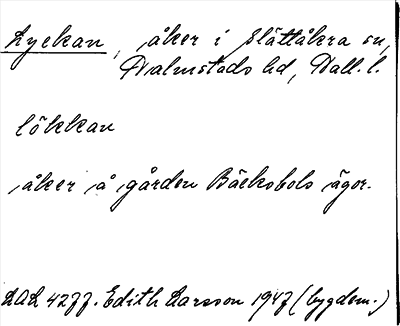 Lyckan, åker i Slättåkra sn,
Halmstads hd, Hall. l.
lökkan
åker å gården Bäcksbols ägor.
LAL 4277. Edith Larsson 1947 (bygdem.)